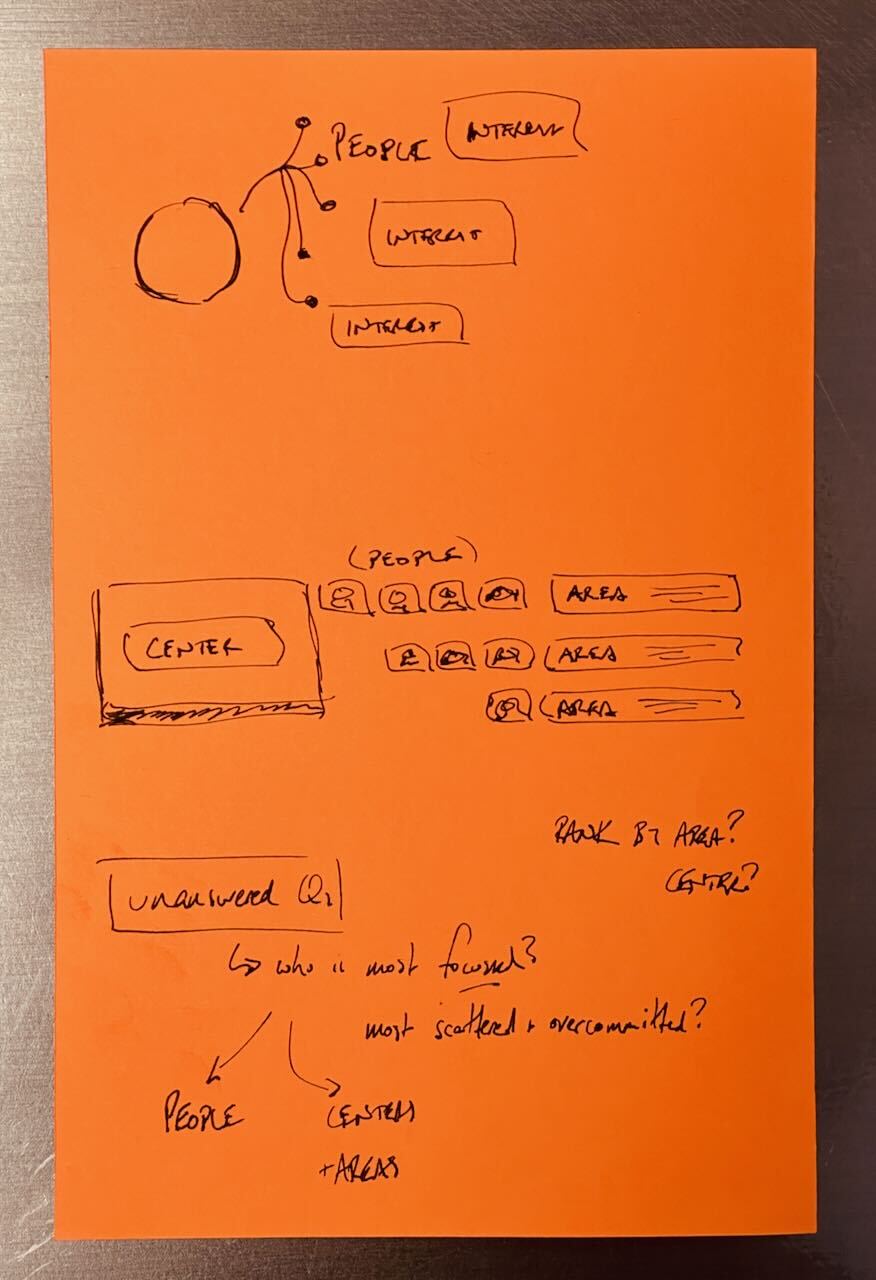 PEOPLE INTEREST
INTEREST
INTEREST
(PEOPLE)
CENTER
AREA
AREA
AREA
RANK BY AREA?
CENTER?
unanswered Qs
↳ who is most focused?
most scattered + overcommitted?
PEOPLE
CENTERS
+AREAS